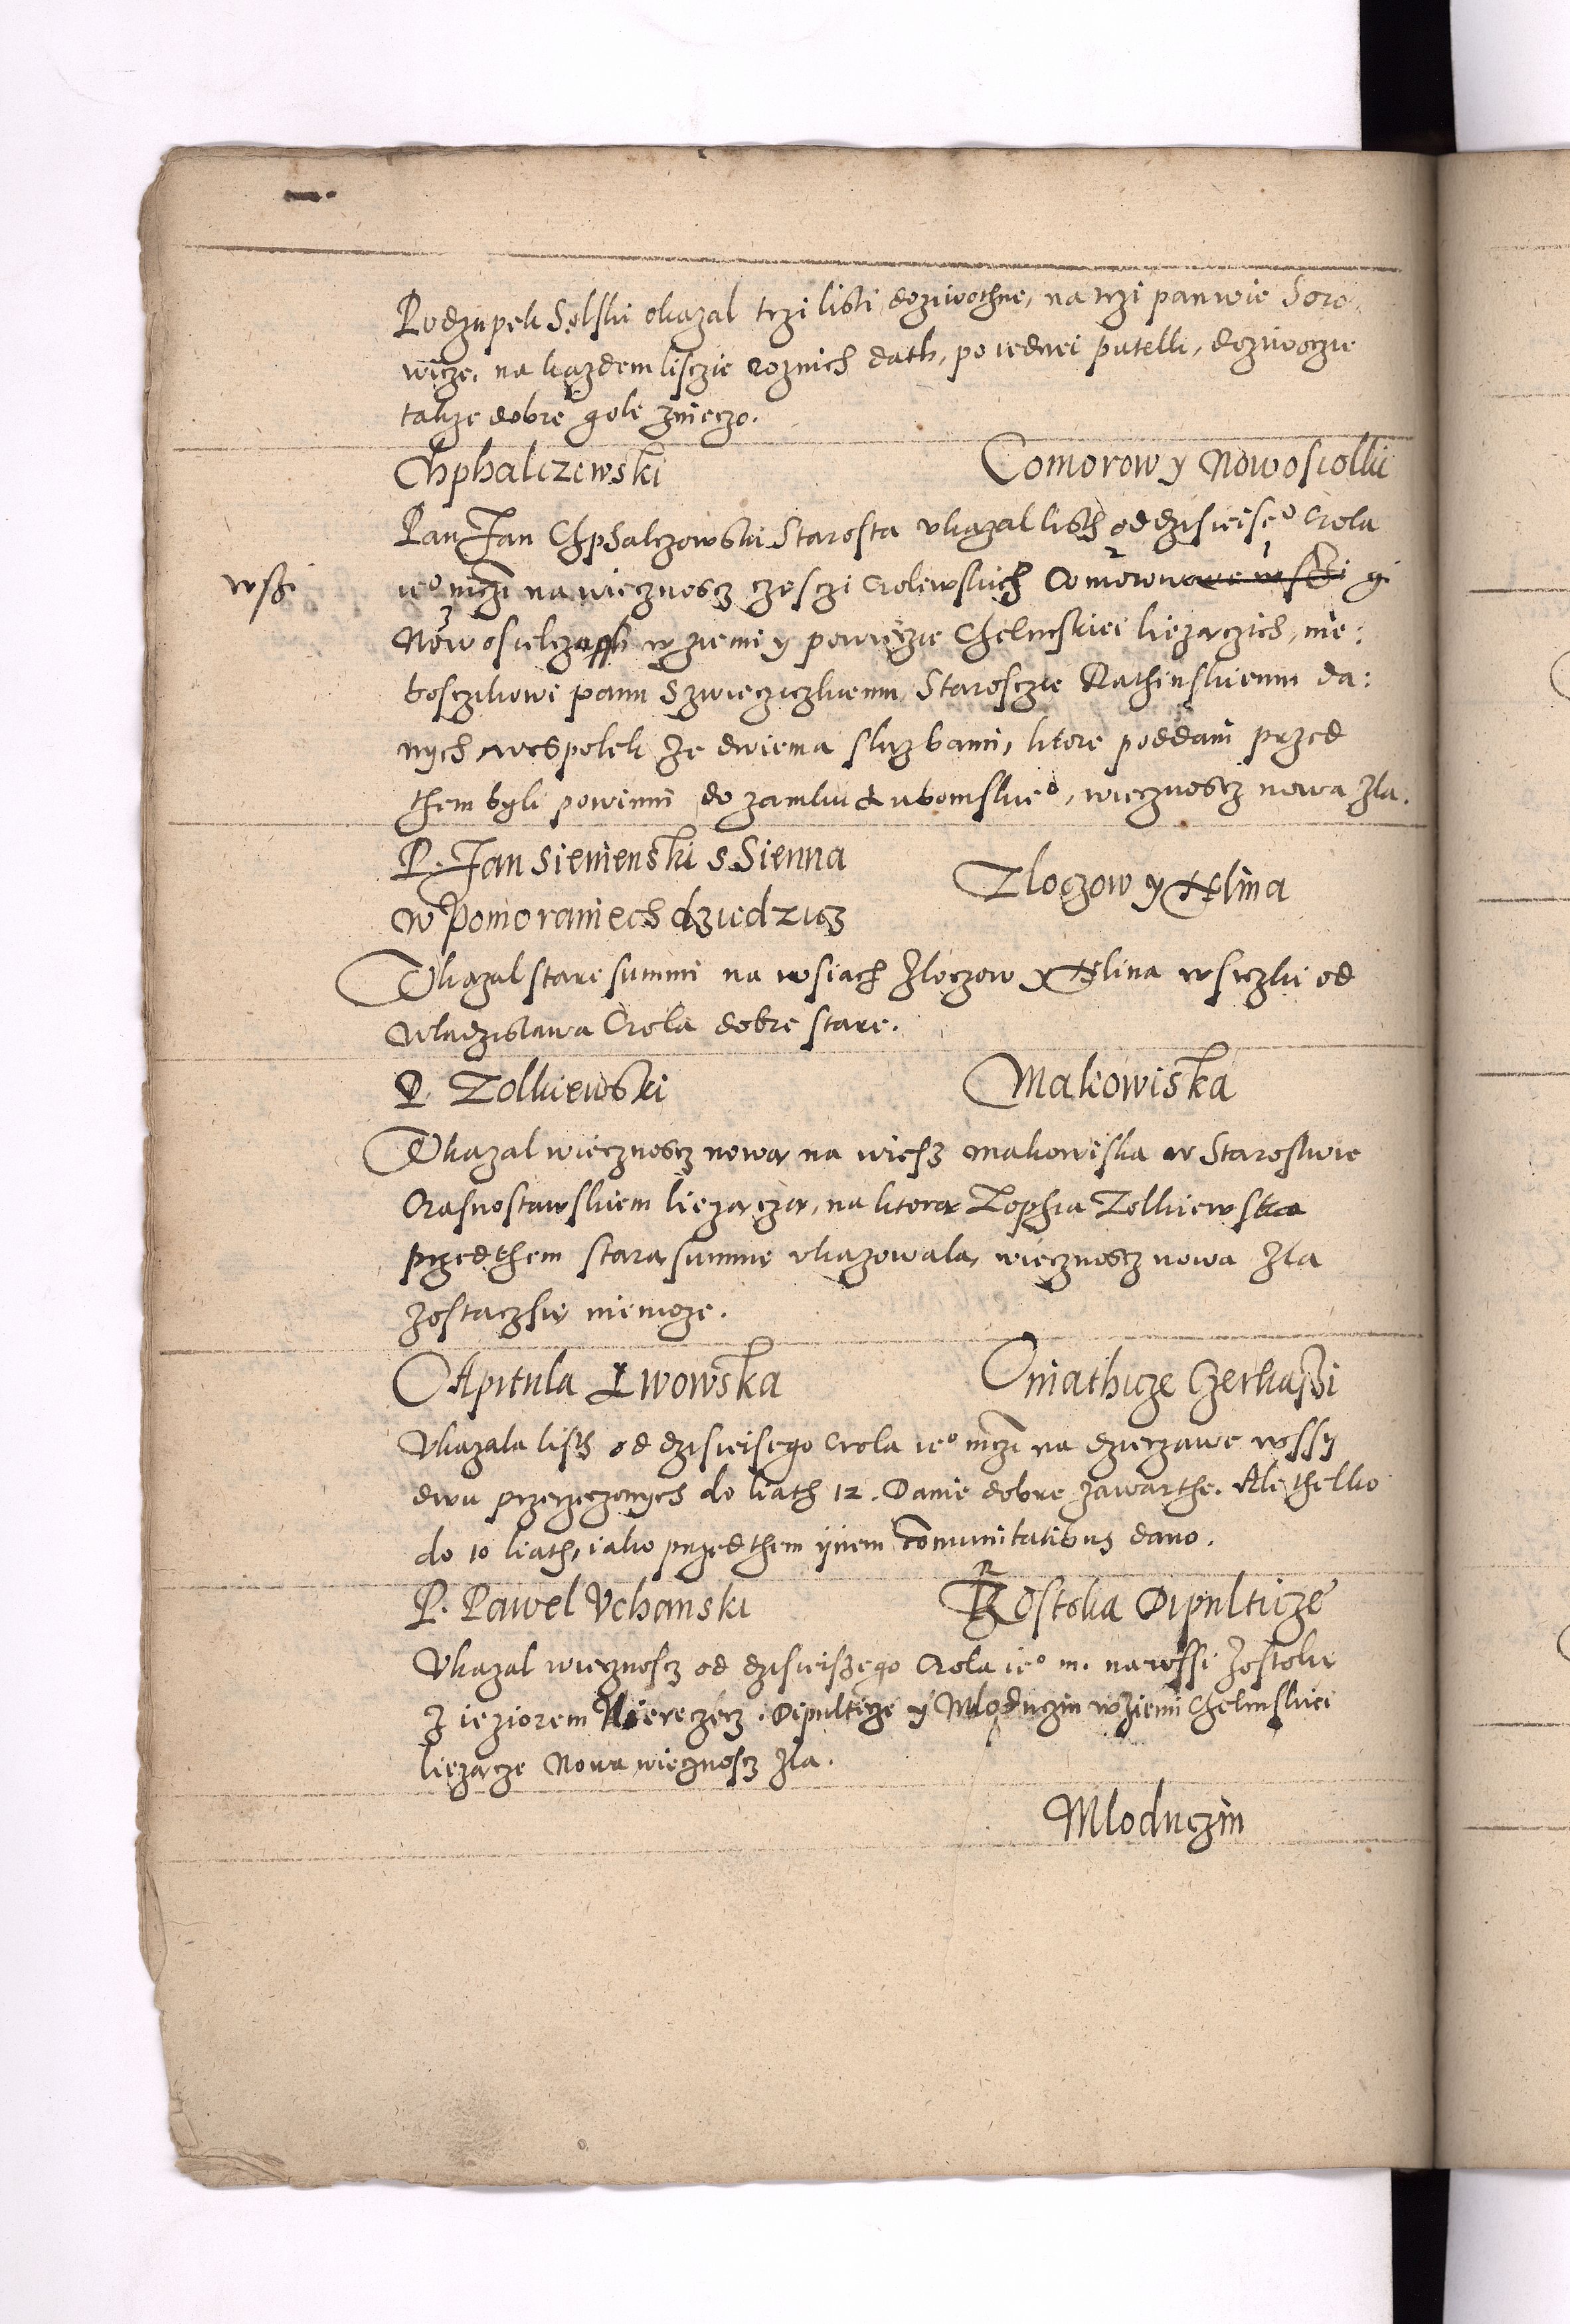 Podzupek Solski okazal trzi listi dozivothne, na trzi panwie Soro
wicze, na kazdem lisczie roznich dath, po iednei patelli, dozivoczie
takze dobre gole znieczo.
Chphalczewski Comorow y Nowosiolki
Pan Jan Chphalczowski Starosta vkazal listh od dzisieise° Crola
ie° mczi na wiecznoscz czesczi Crolewskich Comorow y
wssi
Nowosielcza w ziemi y powieczie Chelmskiei liezaczich, nie:
bosczikowi panu Szwiecziczkiemu Starosczie Rathinskiemu da:
nych wespolek ze dwiema sluzbami, ktore poddani przed
them byli powinni do zamku Lubomskie°, wiecznoscz nowa zla.
P. Jan Sienienski s Sienna
w Pomoraniech dziedzicz Zloczow y Hlina
Vkazal stare summi na wsiach Zloczow y Hlina wsiczki od
Wladzislawa Crola dobre stare.
P. Zolkiewski Makowiska
Vkazal wiecznoscz nowa na wiesz makowiska w Starostwie
Crasnostawskiem liezacza, na ktora Zophia Zolkiewska
przedthem stara summe vkazowala, wiecznoscz nowa zla
zostaczsie niemoze.
Capitula Lwowska Cniathicze Czerkassi
Vkazala listh od dzisieisego Crola ie° mczi na dzierzawe wssy
dwu przerzeczonych do liath 12. Danie dobre zawarthe. Ale thelko
do 10 liath, iako przedthem ijnem comunitatibus dano.
P. Pawel Vchanski Rostoka Dipulticze
Vkazal wiecznoscz od dzisieiszego Crola ie° m. na wssi Zostoke
z ieziorem Dipulticze y Mloduczin w Ziemi Chelmskiei
liezacze Nowa wiecznoscz zla.
Mloduczin